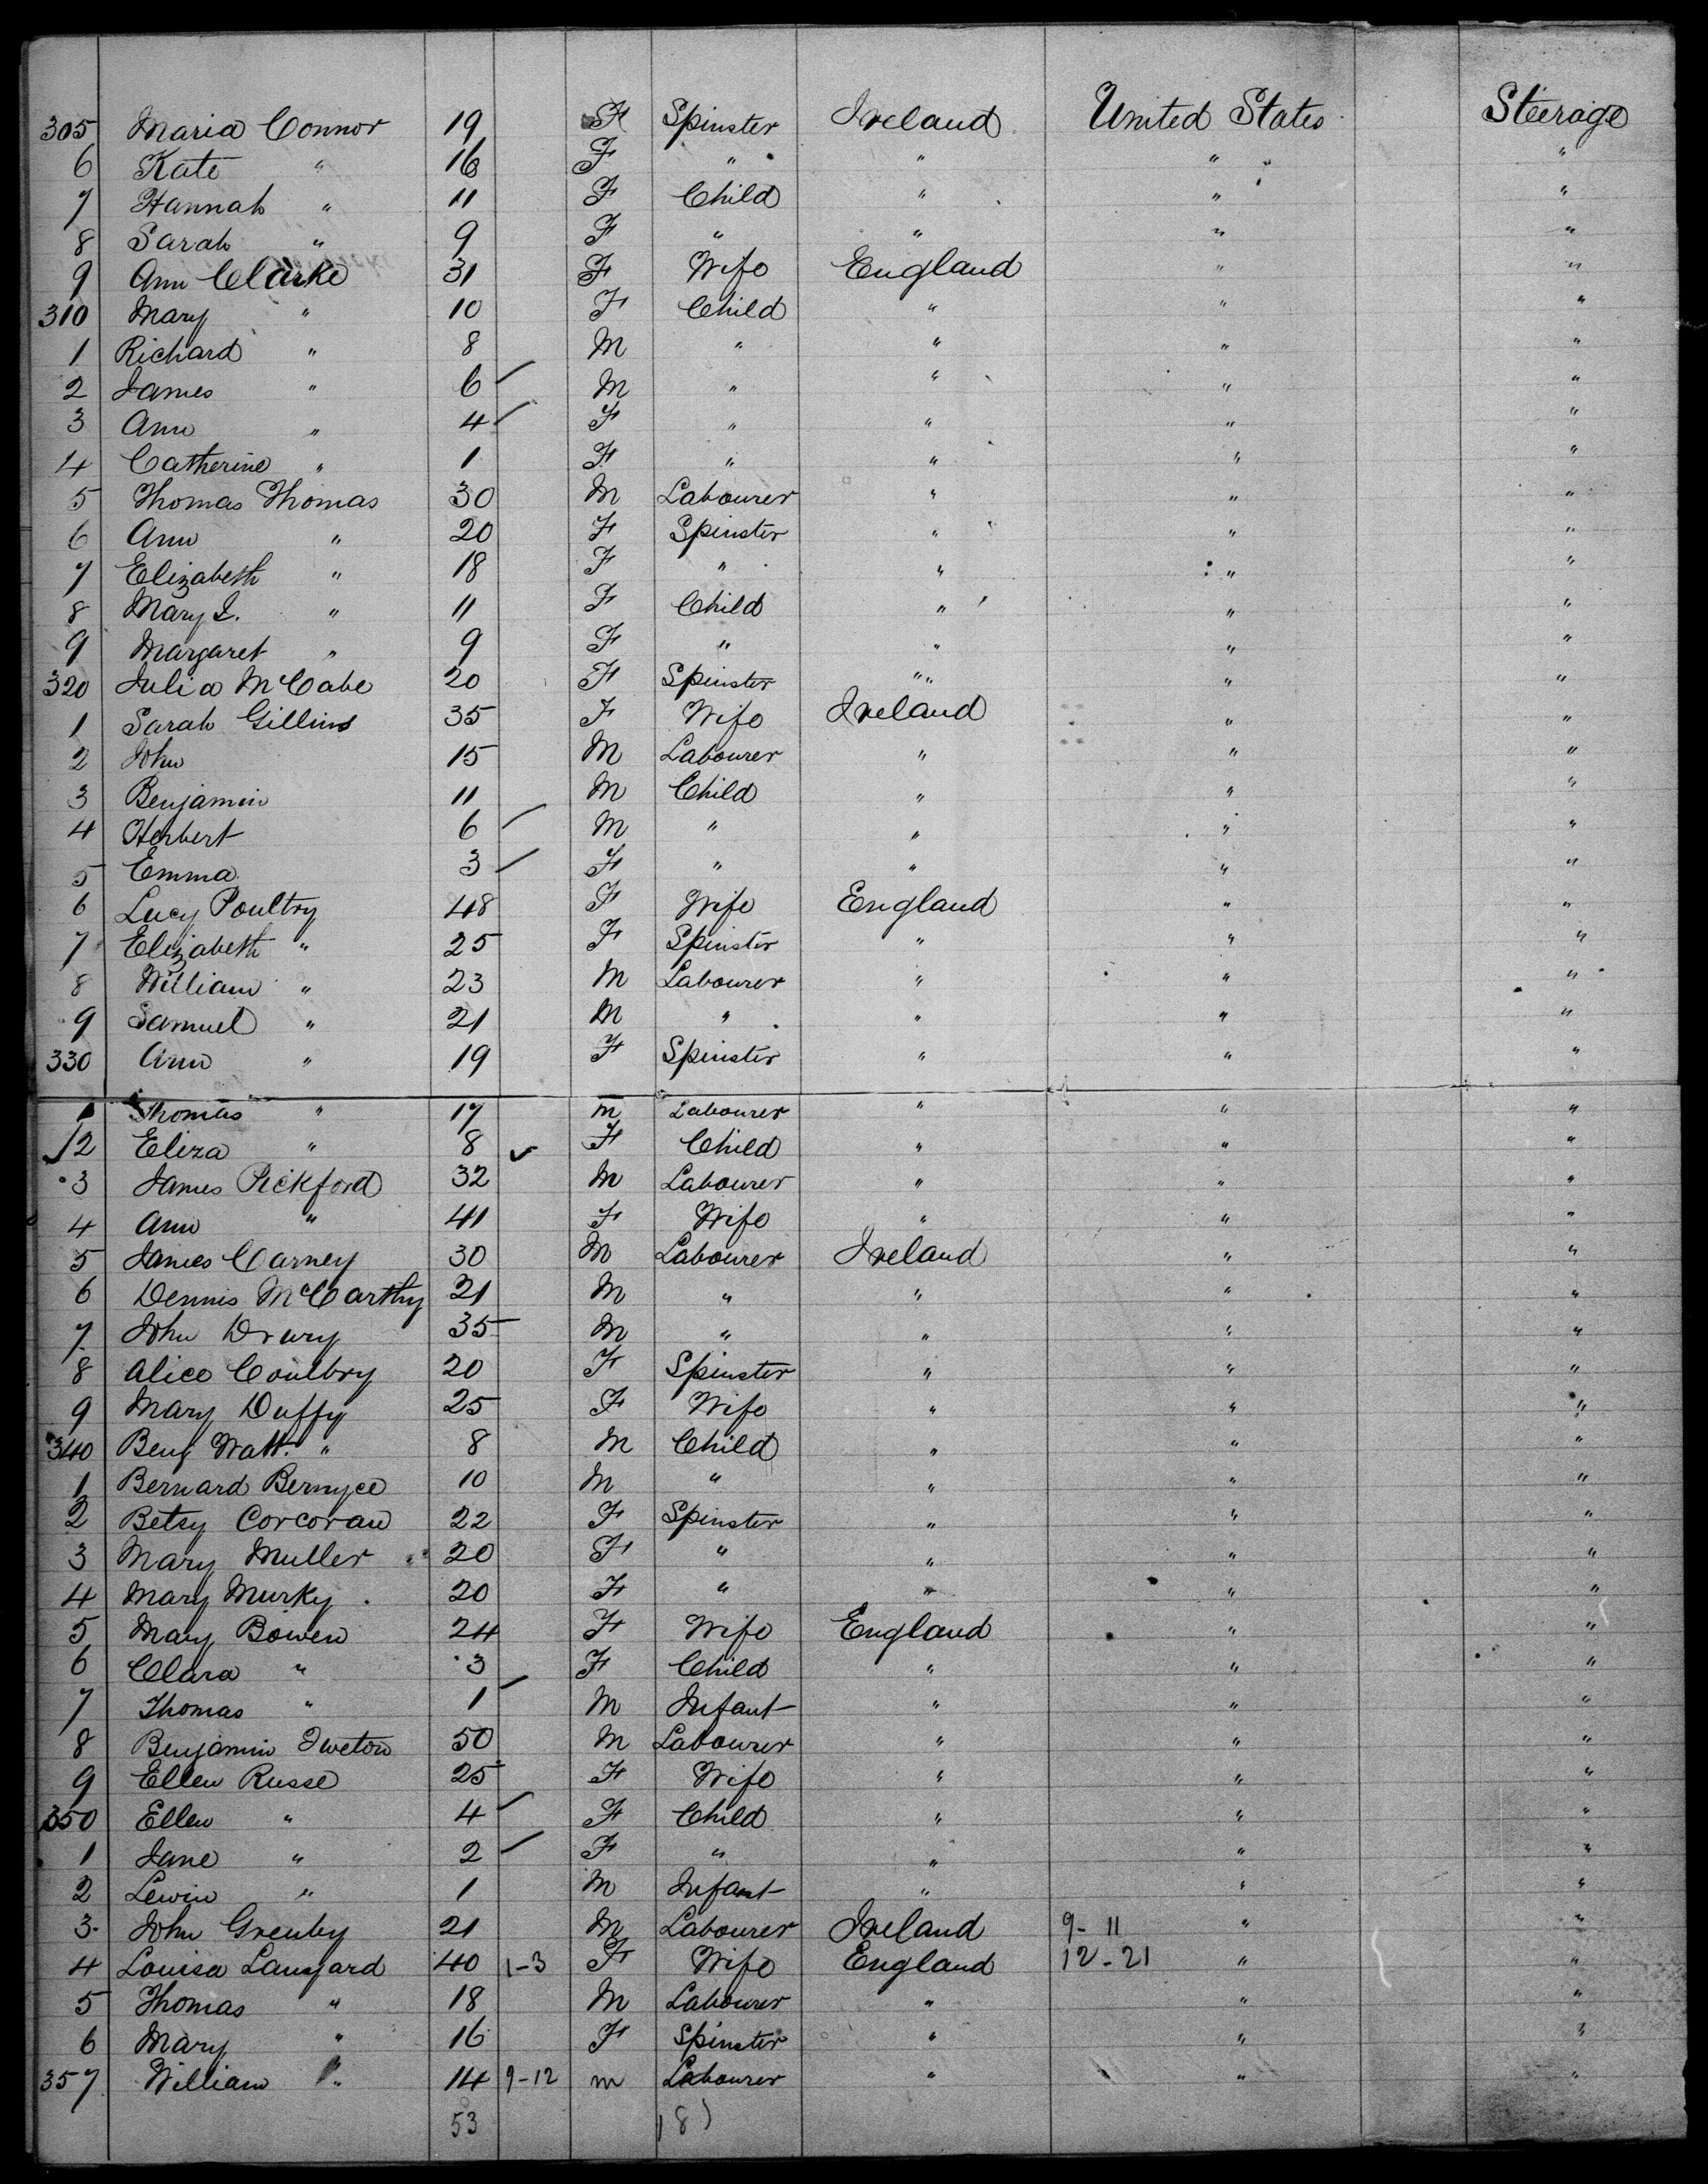 305 Maria Connor 19 F Spinster Ireland United States Steerage
6 Kate " 16 F " " " "
7 Hannah " 11 F Child " " "
8 Sarah " 9 F " " " "
9 Ann Clarke 31 F Wife England " "
310 Mary " 10 F Child " " "
1 Richard " 8 M " " " "
2 James " 6 M " " " "
3 Ann " 4 F " " " "
4 Catherine " 1 F " " " "
5 Thomas Thomas 30 M Labourer " " "
6 Ann " 20 F Spinster " " "
7 Elizabeth " 18 F " " " "
8 Mary I. " 11 F Child " " "
9 Margaret " 9 F " " " "
320 Julia McCabe 20 F Spinster " " "
1 Sarah Gillins 35 F Wife Ireland " "
2 John 15 M Labourer " " "
3 Benjamin 11 M Child " " "
4 Herbert 6 M " " " "
5 Emma 3 F " " " "
6 Lucy Poultry 48 F Wife England " "
7 Elizabeth " 25 F Spinster " " "
8 William " 23 M Labourer " " "
9 Samuel " 21 M " " " "
330 Ann " 19 F Spinster " " "
1 Thomas " 17 M Labourer " " "
2 Eliza " 8 F Child " " "
3 James Pickford 32 M Labourer " " "
4 Ann " 41 F Wife " " "
5 James Carney 30 M Labourer Ireland " "
6 Dennis McCarthy 21 M " " " "
7 John Drury 35 M " " " "
8 Alice Coultry 20 F Spinster " " "
9 Mary Duffy 25 F Wife " " "
340 Benj Watt. " 8 M Child " " "
1 Bernard Bernyce 10 M " " " "
2 Betsy Corcoran 22 F Spinster " " "
3 Mary Muller 20 F " " " "
4 Mary Murky 20 F " " " "
5 Mary Bowen 24 F Wife England " "
6 Clara " 3 F Child " " "
7 Thomas " 1 M Infant " " "
8 Benjamin 50 M Labourer " " "
9 Ellen Russe 25 F Wife " " "
350 Ellen " 4 F Child " " "
1 Jane " 2 F " " " "
2 Lewin " 1 M Infant " " "
3 John Grenby 21 M Labourer Ireland 9-11 " "
4 Louisa Langard 40 1-3 F Wife England 12-21 " "
5 Thomas " 18 M Labourer " " "
6 Mary " 16 F Spinster " " "
357 William " 14 9-12 m Labourer " " "
53 (8)